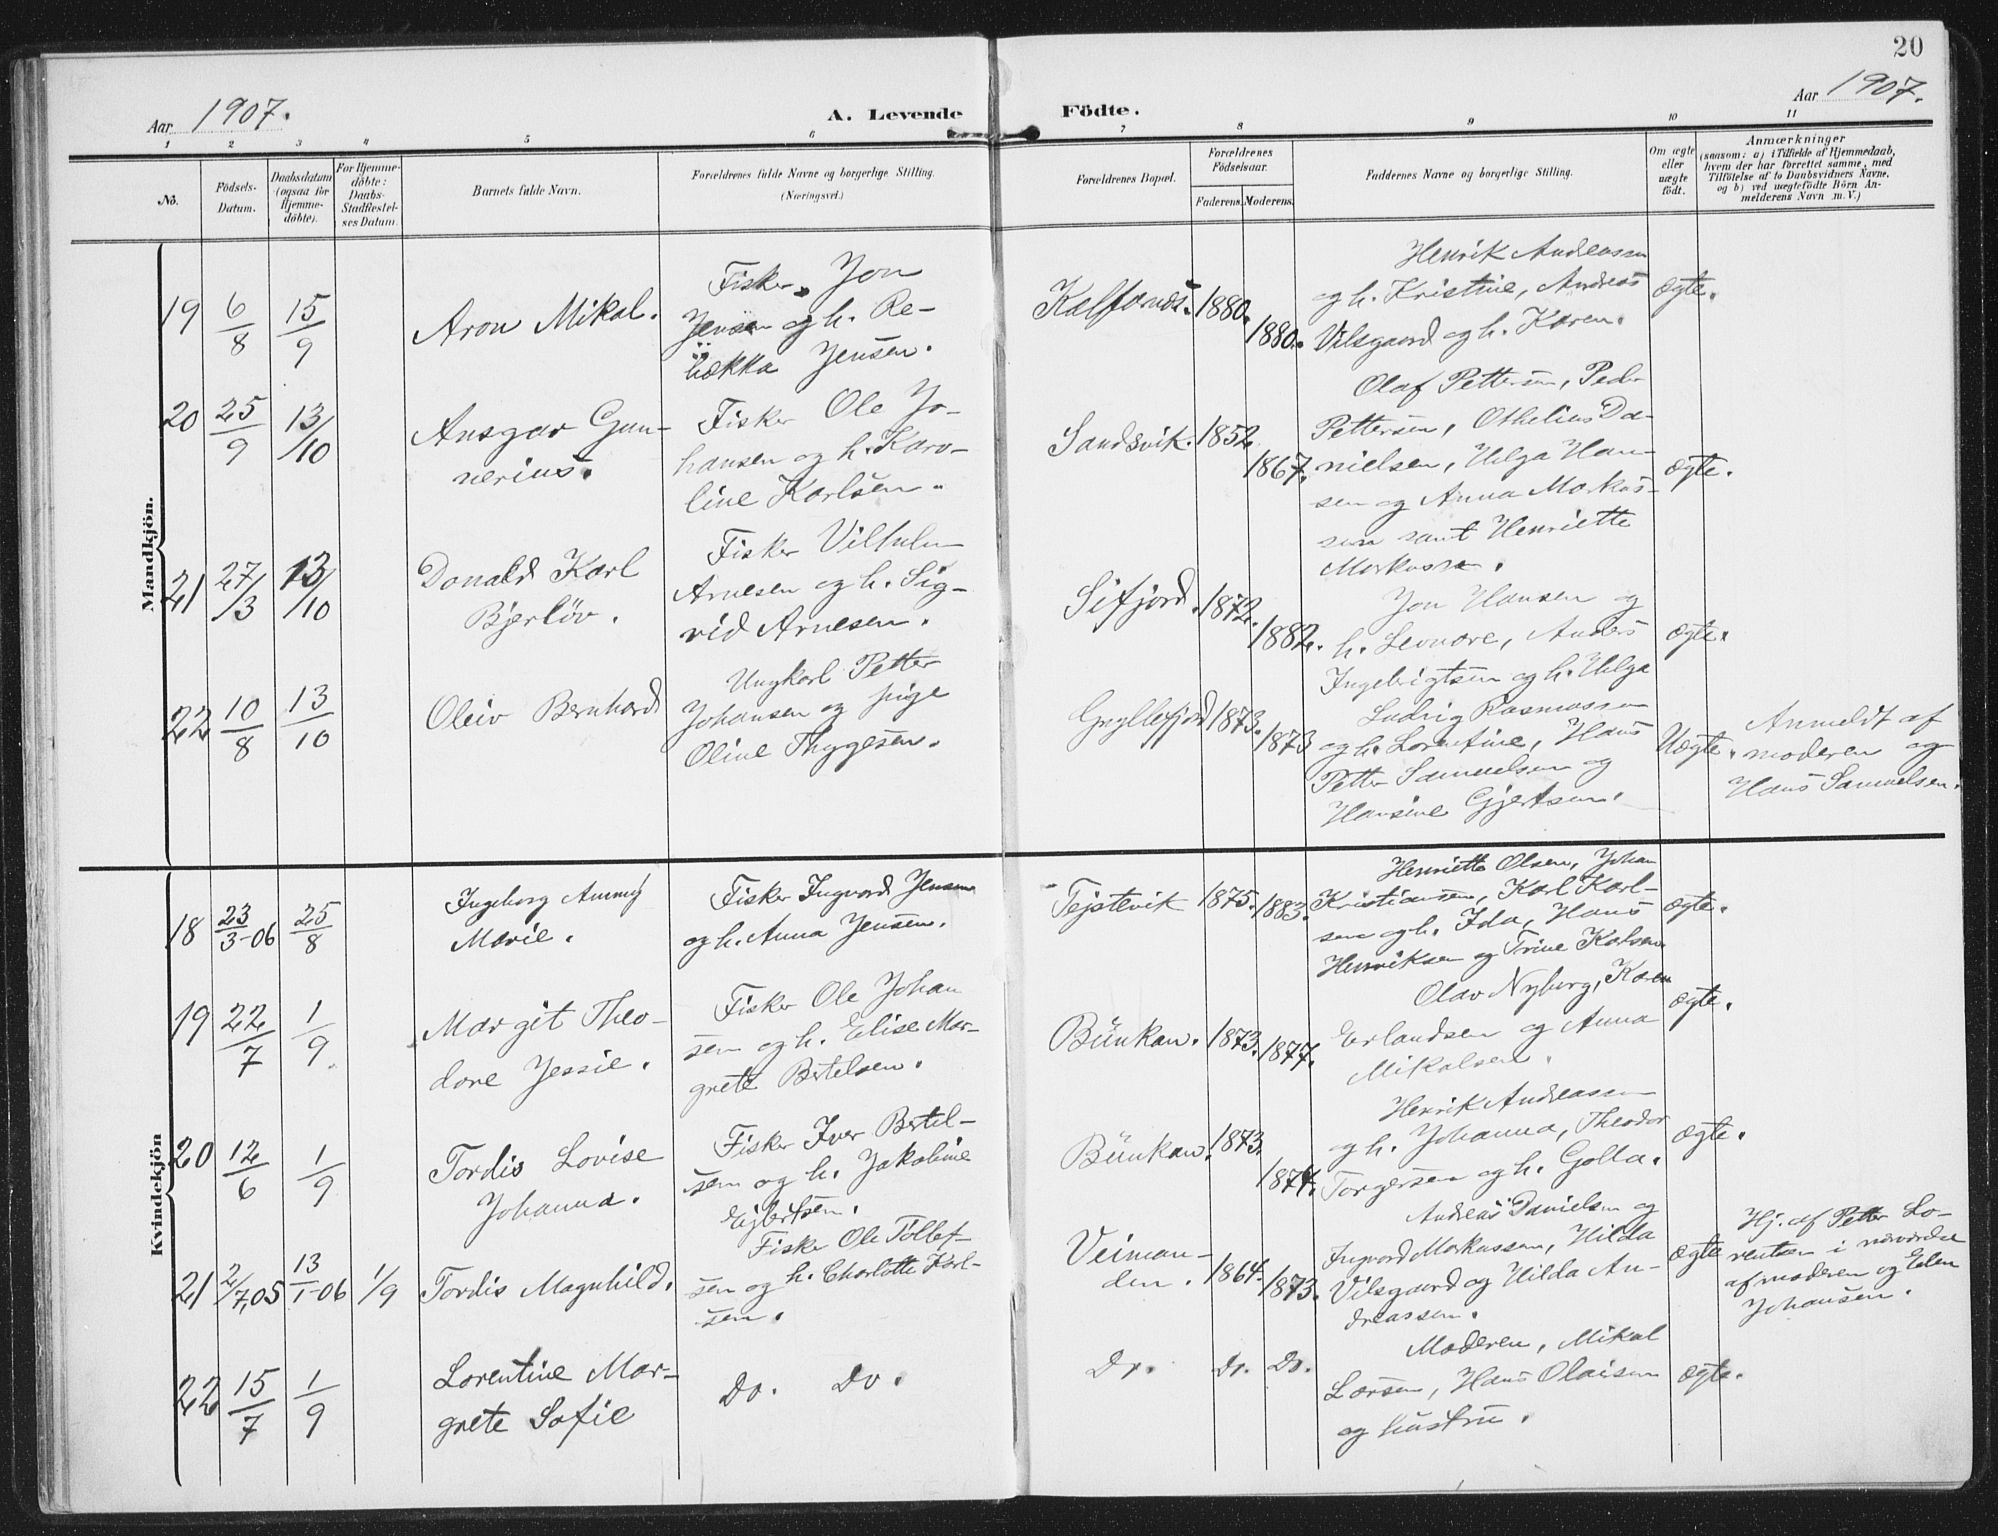 20
Aar 1907.
A. Levende Födte.
Aar 1907.
1 2 3 4 5 6 7 8 9 10 11
No.
Födsels-
Datum.
Daabsdatum
(ogsaa for
Hjemme-
döbte).
For Hjemme-
döbte:
Daabs-
Stadfæstel-
ses Datum.
Barnets fulde Navn.
Forældrenes fulde Navne og borgerlige Stilling.
(Næringsvei.)
Forældrenes Bopæl.
Forældrenes
Födselsaar.
Faderens. Moderens.
Faddernes Navne og borgerlige Stilling.
Om ægte
eller
uægte
födt.
Anmærkninger
(saasom: a) i Tilfælde af Hjemmedaab,
hvem der har forrettet samme, med
Tilföielse af to Daabsvidners Navne,
og b) ved uægtefödte Börn An-
melderens Navn m. V.)
Mandkjön.
19 6/8 15/9
Aron Mikal.
Fisker Jon
Jensen og h. Re-
bekka Jensen.
Kalfarnes. 1880. 1880.
Henrik Andreassen
og h. Kristine, Andreas
Vilsgaard og h. Karen.
ægte.
20 25/9 13/10
Ansgar Gun-
nerius.
Fisker Ole Jo-
hansen og h. Karo-
line Karlsen.
Sandsvik. 1852. 1867.
Olaf Pettersen, Peder
Pettersen, Othelius Da-
nielsen, Helga Han-
sen og Anna Markus-
sen samt Henriette
Markussen.
ægte.
21 27/3 13/10
Donald Karl
Bjerløv.
Fisker Vilhelm
Arnesen og h. Sig-
rid Arnesen.
Sifjord. 1872. 1882.
Jon Hansen og
h. Leonore, Anders
Ingebrigtsen og h. Helga
ægte.
22 10/8 13/10
Oleiv Bernhard
Ungkarl Petter
Johansen og pige
Oline Thygesen.
Gryllefjord 1873. 1873
Ludvig Rasmussen
og h. Lorentine, Hans
Petter Samuelsen og
Hansine Gjertsen.
Uægte.
Anmeldt af
moderen og
Hans Samuelsen.
Kvindekjön
18 23/3-06 25/8
Ingeborg Ammy
Marie.
Fisker Ingvard Jensen
og h. Anna Jensen.
Tejstevik 1875. 1883.
Henriette Olsen, Johan
Kristiansen, Karl Karl-
sen og h. Ida, Hans
Henriksen og Trine Kalsen.
ægte.
19 22/7 1/9.
Margit Theo-
dore Jessie.
Fisker Ole Johan
sen og h. Elise Mar-
grete Bertelsen.
Bünkan. 1873. 1877.
Olav Nyberg, Karen
Erlandsen og Anna
Mikalsen.
ægte.
20 12/6 1/9
Tordis Lovise
Johanna.
Fisker Iver Bertel-
sen og h. Jakobine
Ejbertsen.
Bünkan. 1873. 1874.
Henrik Andreassen
og h. Johanna, Theodor
Torgersen og h. Golla.
ægte.
21 2/7,05 13/1-06 1/9
Tordis Magnhild.
Fisker Ole Tollef-
sen og h. Charlotte Karl-
sen.
Veiman-
den. 1864. 1873.
Andreas Danielsen og
Ingvard Markussen, Hilda
Vilsgaard og Hilda An-
dreassen.
ægte
Hj. af Petter Lo-
rentsen i nærværelse
af moderen og Eden
Johansen.
22 15/7 1/9
Lorentine Mar-
grete Sofie
Do. Do.
Do. Do. Do.
Moderen, Mikal
Larsen, Hans Olaisen
og hustru.
ægte.